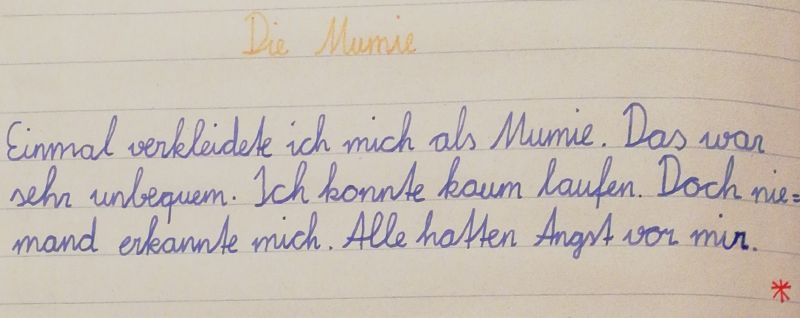 Die Mumie
Einmal verkleidete ich mich als Mumie. Das war
sehr unbequem. Ich konnte kaum laufen. Doch nie=
mand erkannte mich. Alle hatten Angst vor mir.
*